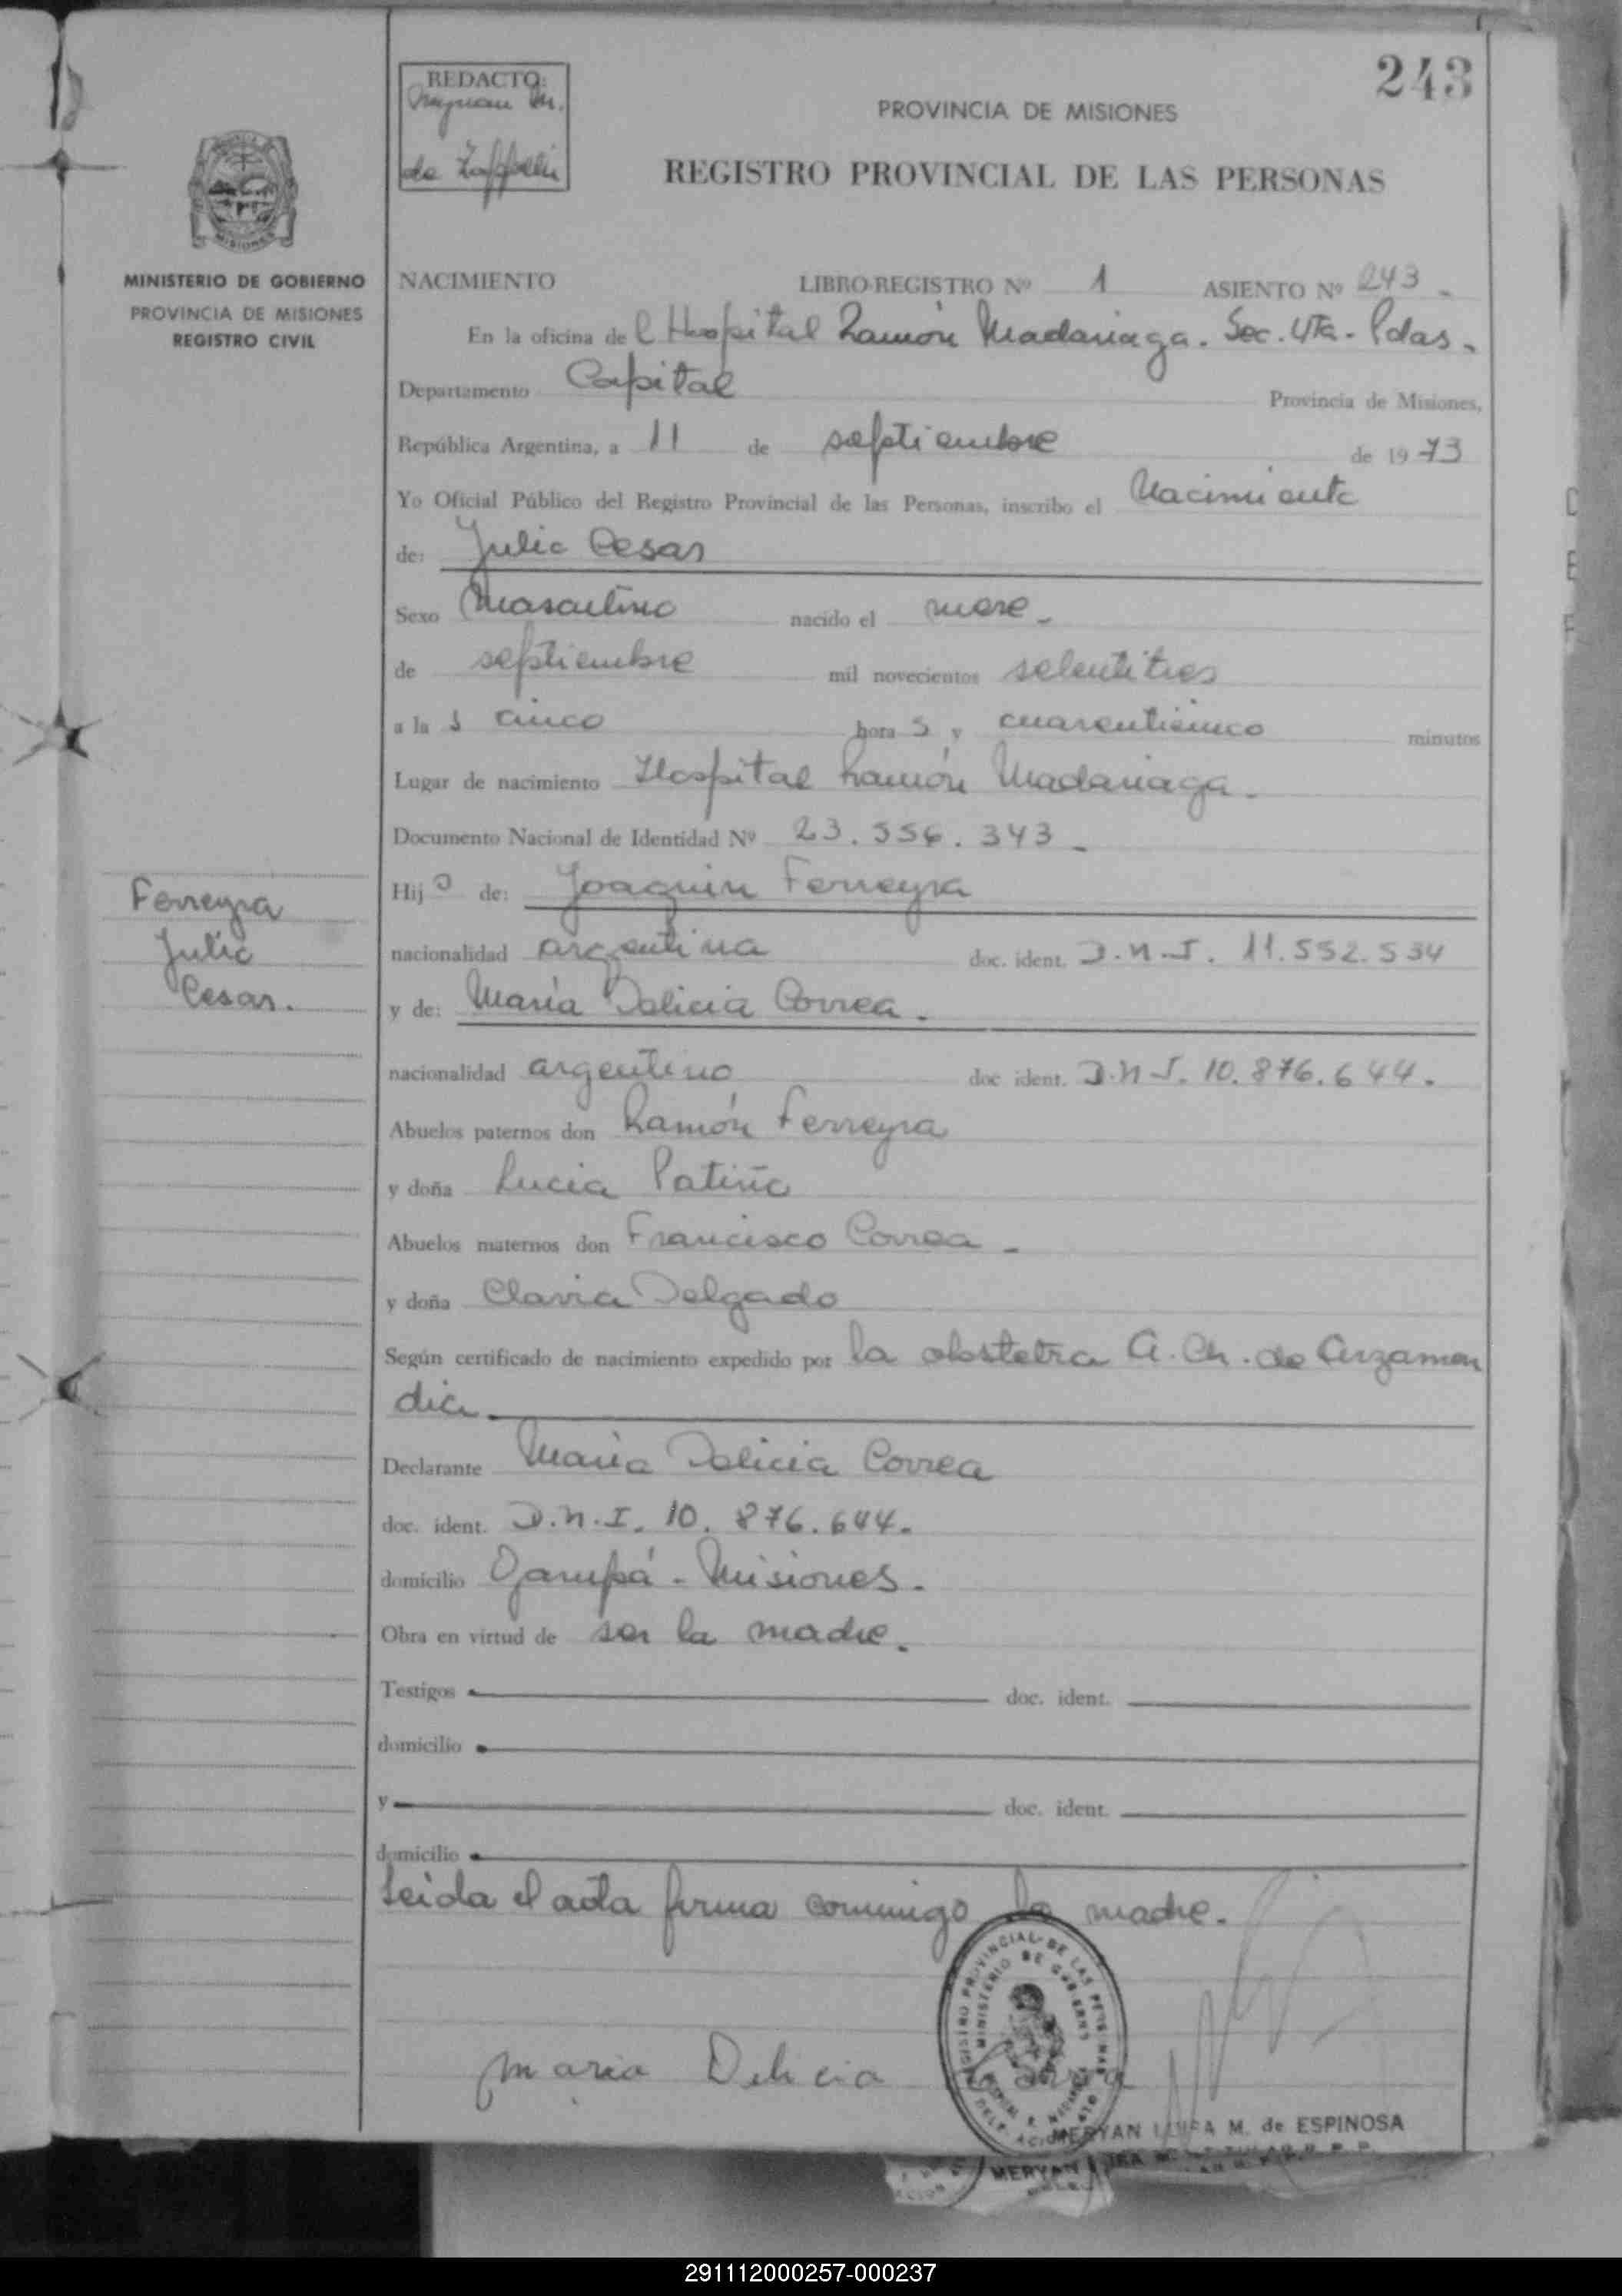 243
REDACTO:
de Zaffalli
PROVINCIA DE MISIONES
REGISTRO PROVINCIAL DE LAS PERSONAS
MINISTERIO DE GOBIERNO
PROVINCIA DE MISIONES
REGISTRO CIVIL
NACIMIENTO LIBRO-REGISTRO Nº 1 ASIENTO Nº 243 -
En la oficina de l Hospital Ramón Madariaga. Sec. 4ta - Pdas.
Departamento Capital Provincia de Misiones,
República Argentina, a 11 de septiembre de 1973
Yo Oficial Público del Registro Provincial de las Personas, inscribo el Nacimiento
de: Julio Cesar
Sexo Masculino nacido el nueve -
de septiembre mil novecientos setentitres
a la s cinco hora s y cuarenticinco minutos
Lugar de nacimiento Hospital Ramón Madariaga -
Documento Nacional de Identidad Nº 23.556.343 -
Hijo de: Joaquin Ferreyra
nacionalidad argentina doc. ident. D.N.I. 11.552.534
y de: María Delicia Correa.
nacionalidad argentino doc ident. D.N.I. 10.876.644.
Abuelos paternos don Ramón Ferreyra
y doña Lucia Patiño
Abuelos maternos don Francisco Correa -
y doña Claria Delgado
Según certificado de nacimiento expedido por la obstetra A. Ch. de Arzamen
dia
Declarante María Delicia Correa
doc. ident. D.N.I. 10.876.644.
domicilio Garupá - Misiones.
Obra en virtud de ser la madre.
Testigos doc. ident.
domicilio
y doc. ident.
domicilio
Leida el acta firma conmigo la madre.
Ferreyra
Julio
Cesar.
maria Delicia
MERYAN LUISA M. de ESPINOSA
291112000257-000237